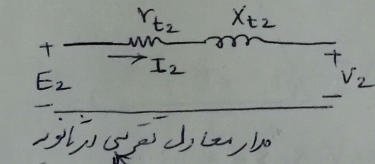 r_t2 X_t2
+ +
I_2
E_2 V_2
- -
مدار معادل تقریبی در ثانویه